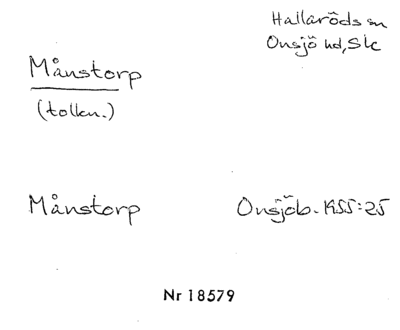 Hallaröds sn
Onsjö hd, Sk
Månstorp
(tolkn.)
Månstorp Onsjöb. 1955:25
Nr 18579